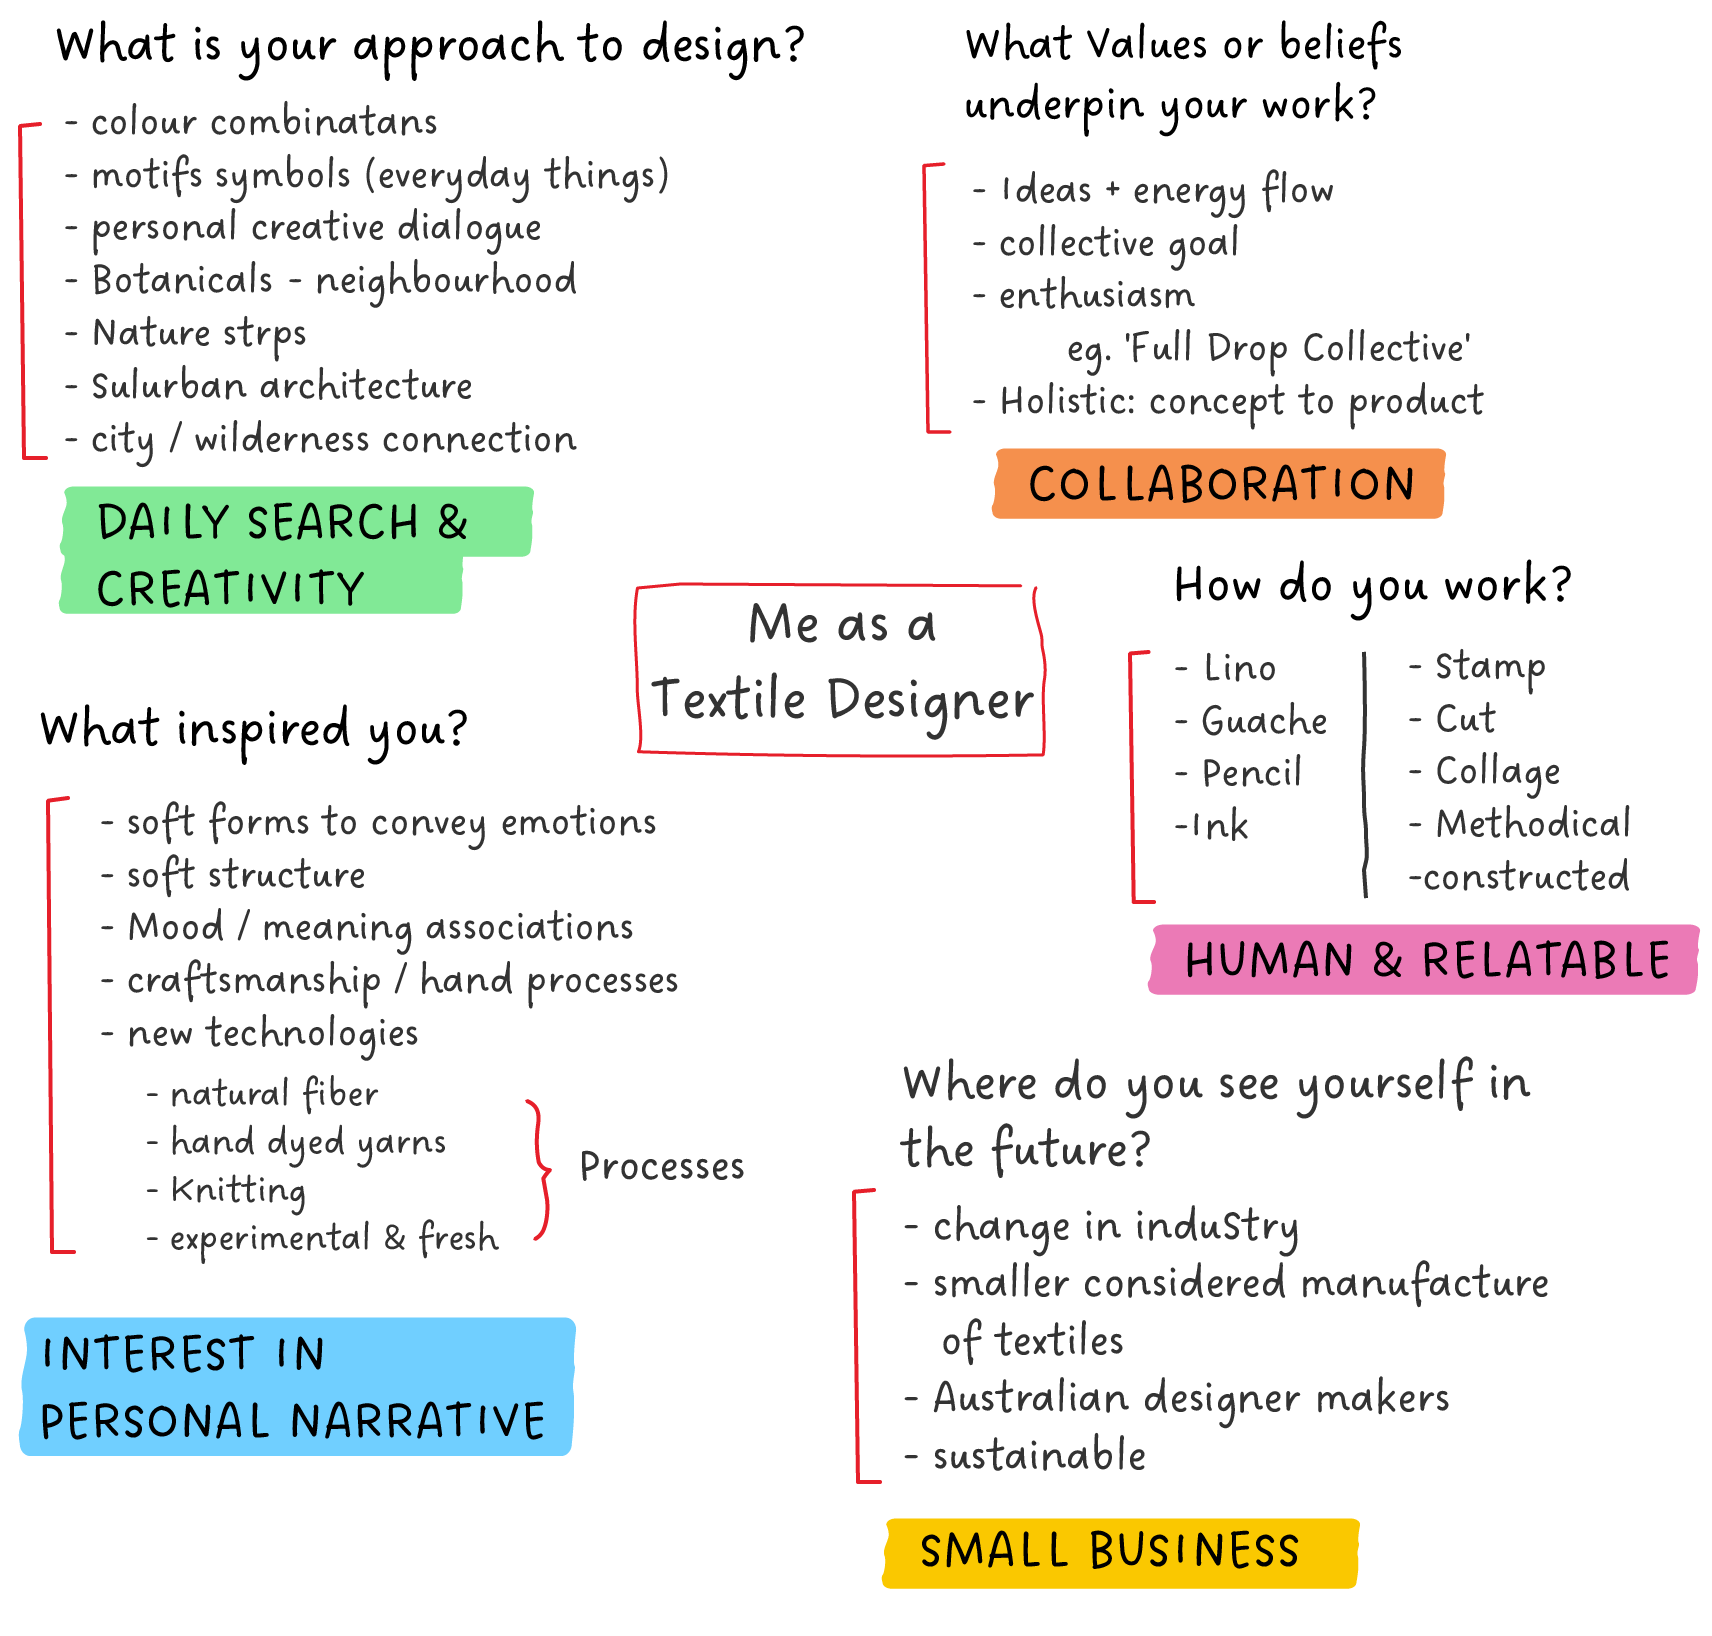 What is your approach to design?
- colour combinatans
- motifs symbols (everyday things)
- personal creative dialogue
- Botanicals - neighbourhood
- Nature strps
- Sulurban architecture
- city / wilderness connection
DAILY SEARCH &
CREATIVITY
What Values or beliefs
underpin your work?
- Ideas + energy flow
- collective goal
- enthusiasm
eg. 'Full Drop Collective'
- Holistic: concept to product
COLLABORATION
Me as a
Textile Designer
How do you work?
- Lino
- Guache
- Pencil
-Ink
- Stamp
- Cut
- Collage
- Methodical
-constructed
HUMAN & RELATABLE
What inspired you?
- soft forms to convey emotions
- soft structure
- Mood / meaning associations
- craftsmanship / hand processes
- new technologies
- natural fiber
- hand dyed yarns
- Knitting
- experimental & fresh
Processes
INTEREST IN
PERSONAL NARRATIVE
Where do you see yourself in
the future?
- change in induStry
- smaller considered manufacture
of textiles
- Australian designer makers
- sustainable
SMALL BUSINESS